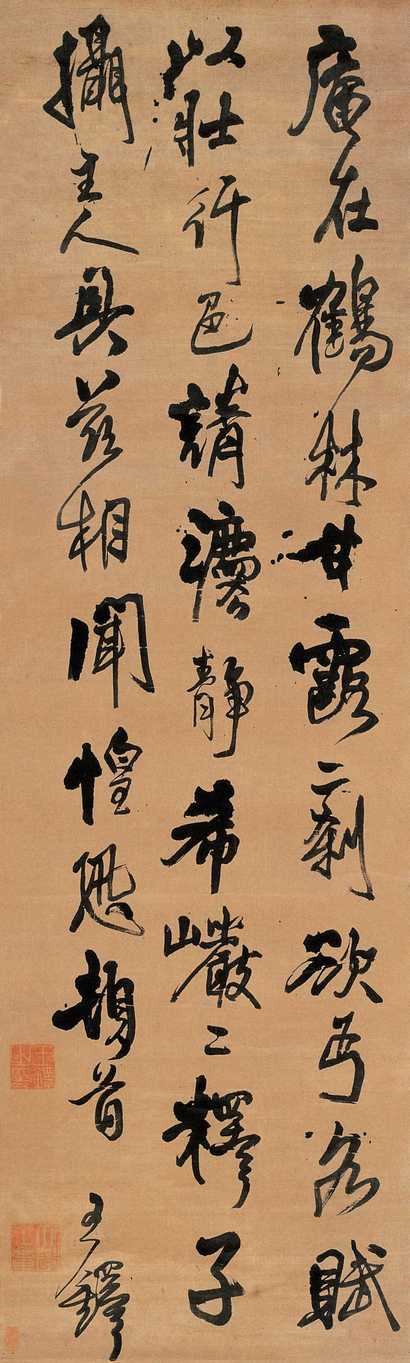 庵在鶴林甘露二刹欲丐名賦
以壯行色請濡靜希巖二釋子
攝主人與茲相聞惶恐頓首 王鐸